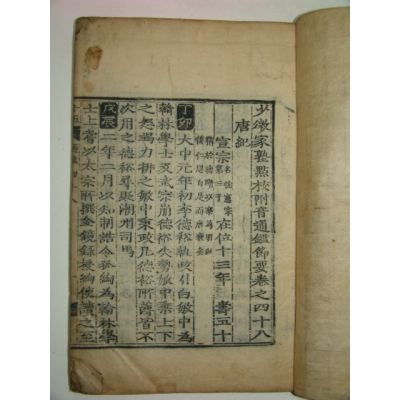 少微家塾點校附音通鑑節要卷之四十八
唐紀
宣宗 名忱憲宗第十三子 在位十三年 壽五十
丁卯 大中元年初李德裕執政引白敏中爲
翰林學士及武宗崩德裕失勢敏中乘上下
之怒竭力排之敏中秉政凡德裕所薄皆不
次用之德裕尋貶潮州司馬
戊辰 二年二月以知制誥令狐綯爲翰林學
士上嘗以太宗所撰金鏡錄授綯使讀之至